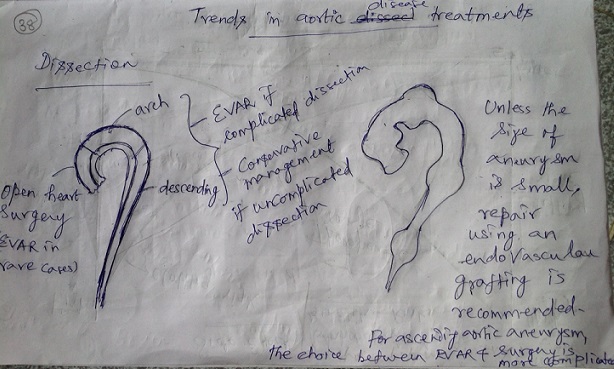 38
Trends in aortic dissec disease treatments
Dissection
arch
EVAR if
complicated dissection
Conservative
management
if uncomplicated
dissection
descending
Open heart
surgery
EVAR in
rare cases)
Unless the
size of
aneurysm
is small,
repair
using an
endovascular
grafting is
recommended.
For ascending aortic aneurysm,
the choice between EVAR & surgery is
more complicated